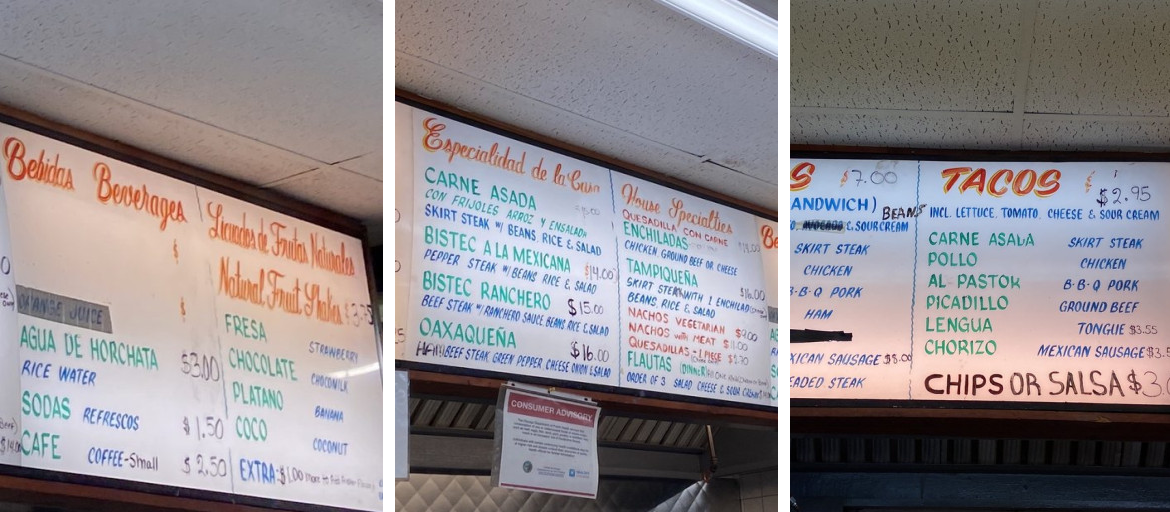 Bebidas Beverages
$
ORANGE JUICE
AGUA DE HORCHATA $3.00
RICE WATER
SODAS REFRESCOS $1.50
CAFE COFFEE-Small $2.50
Licuados de Frutas Naturales
Natural Fruit Shakes $3.75
FRESA STRAWBERRY
CHOCOLATE CHOCOMILK
PLATANO BANANA
COCO COCONUT
EXTRA-$1.00 more to
Especialidad de la Casa
CARNE ASADA
CON FRIJOLES ARROZ Y ENSALADA
SKIRT STEAK W/ BEANS, RICE & SALAD
BISTEC A LA MEXICANA $14.00
PEPPER STEAK W/BEANS RICE & SALAD
BISTEC RANCHERO $15.00
BEEF STEAK W/RANCHERO SAUCE BEANS RICE & SALAD
OAXAQUEÑA $16.00
BEEF STEAK GREEN PEPPER, CHEESE ONION & SALAD
House Specialties
QUESADILLA CON CARNE
ENCHILADAS
CHICKEN GROUND BEEF OR CHEESE
TAMPIQUEÑA $16.00
SKIRT STEAK WITH 1 ENCHILADA
BEANS RICE & SALAD
NACHOS VEGETARIAN $9.00
NACHOS WITH MEAT $11.00
QUESADILLAS-1 PIECE
FLAUTAS (DINNER)
ORDER OF 3 SALAD CHEESE & SOUR CREAM
CONSUMER ADVISORY
S $7.00
ANDWICH) BEANS
& SOUR CREAM
SKIRT STEAK
CHICKEN
B-B-Q PORK
HAM
XICAN SAUSAGE $8.00
EADED STEAK
TACOS $2.95
INCL. LETTUCE, TOMATO, CHEESE & SOUR CREAM
CARNE ASADA SKIRT STEAK
POLLO CHICKEN
AL PASTOR B-B-Q PORK
PICADILLO GROUND BEEF
LENGUA TONGUE $3.55
CHORIZO MEXICAN SAUSAGE $3.5
CHIPS OR SALSA $3.